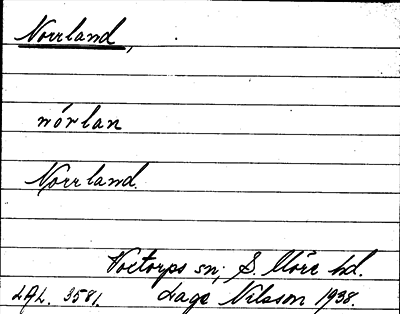 Norrland,
nórlan
Norrland.
Voctorps sn; S. Möre hd.
LAL. 3581. Lage Nilsson 1938.